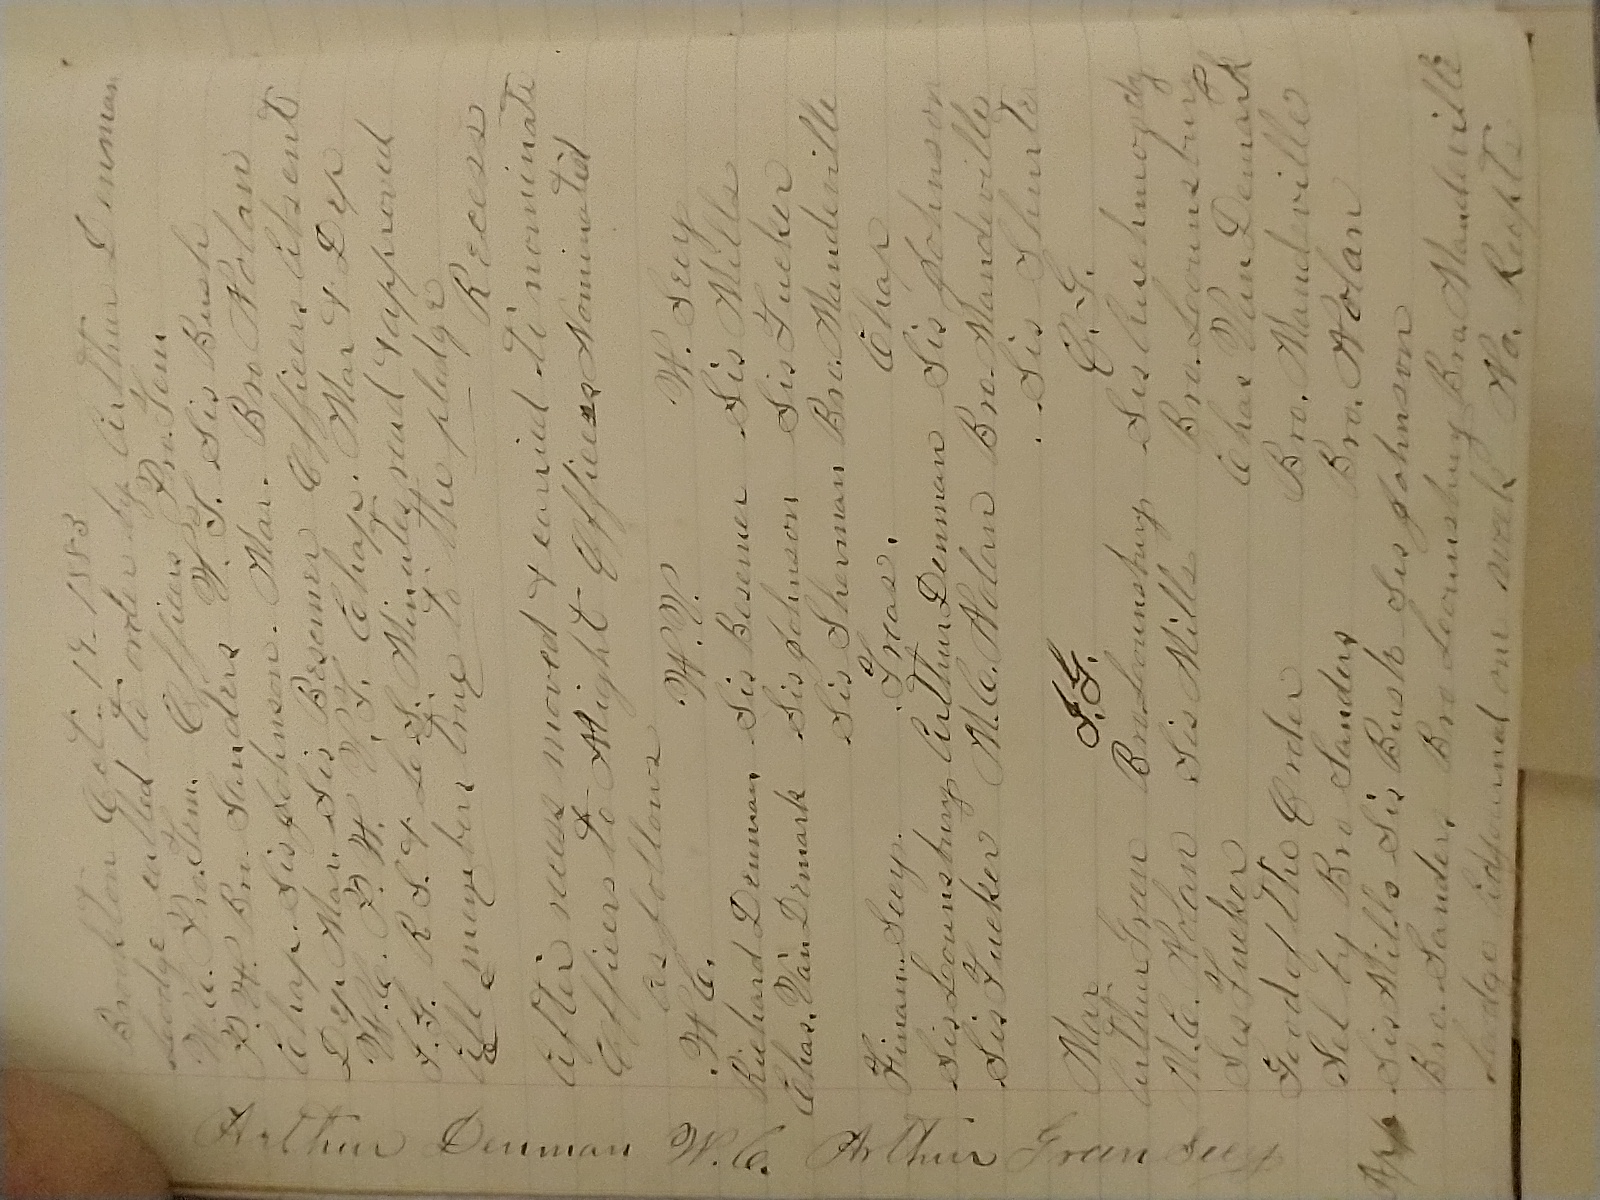 Brookton Oct. 19. 1883
Lodge called to order by Arthur Denman
W.C. Pro.Tem. Officers Pro.Tem
P.W. Bro. Sanders V.T. Sis Bush
Chap. Sis Johnson. Mar. Bro Nolan
Dep Mar. Sis Besemer Officers Absent
W.C. P.W. V.T. Chap. Mar & Dep
I.G. R S. & L. S. Minutes read & approved
All members true to the pledge
Recess
After recess moved & carried to nominate
Officers to Night Officers Nominated
as follows
W C. W.V. W. Secy
Richard Denman Sis Besemer Sis Mills
Chas. Van Demark Sis Johnson Sis Tucker
Sis Sherman Bro. Mandeville
Finan. Secy. Treas. Chap
Sis Lounsbury Arthur Denman Sis Johnson
Sis Tucker M.C. Nolan Bro. Mandeville
Sis Shurter
Mar I.G. O.G.
Arthur Green Bro Lounsbury Sis Auchmoody
M.C. Nolan Sis Mills Bro. Lounsbury
Sis Tucker Chas Van Demark
Good of the Order Bro. Mandeville
Sel by Bro Sanders Bro. Nolan
Sis Mills Sis Bush Sis Johnson
Bro. Sanders Bro Lounsbury Bro. Mandeville
Lodge Adjourned one week No. Recpts
Arthur Denman W.C.